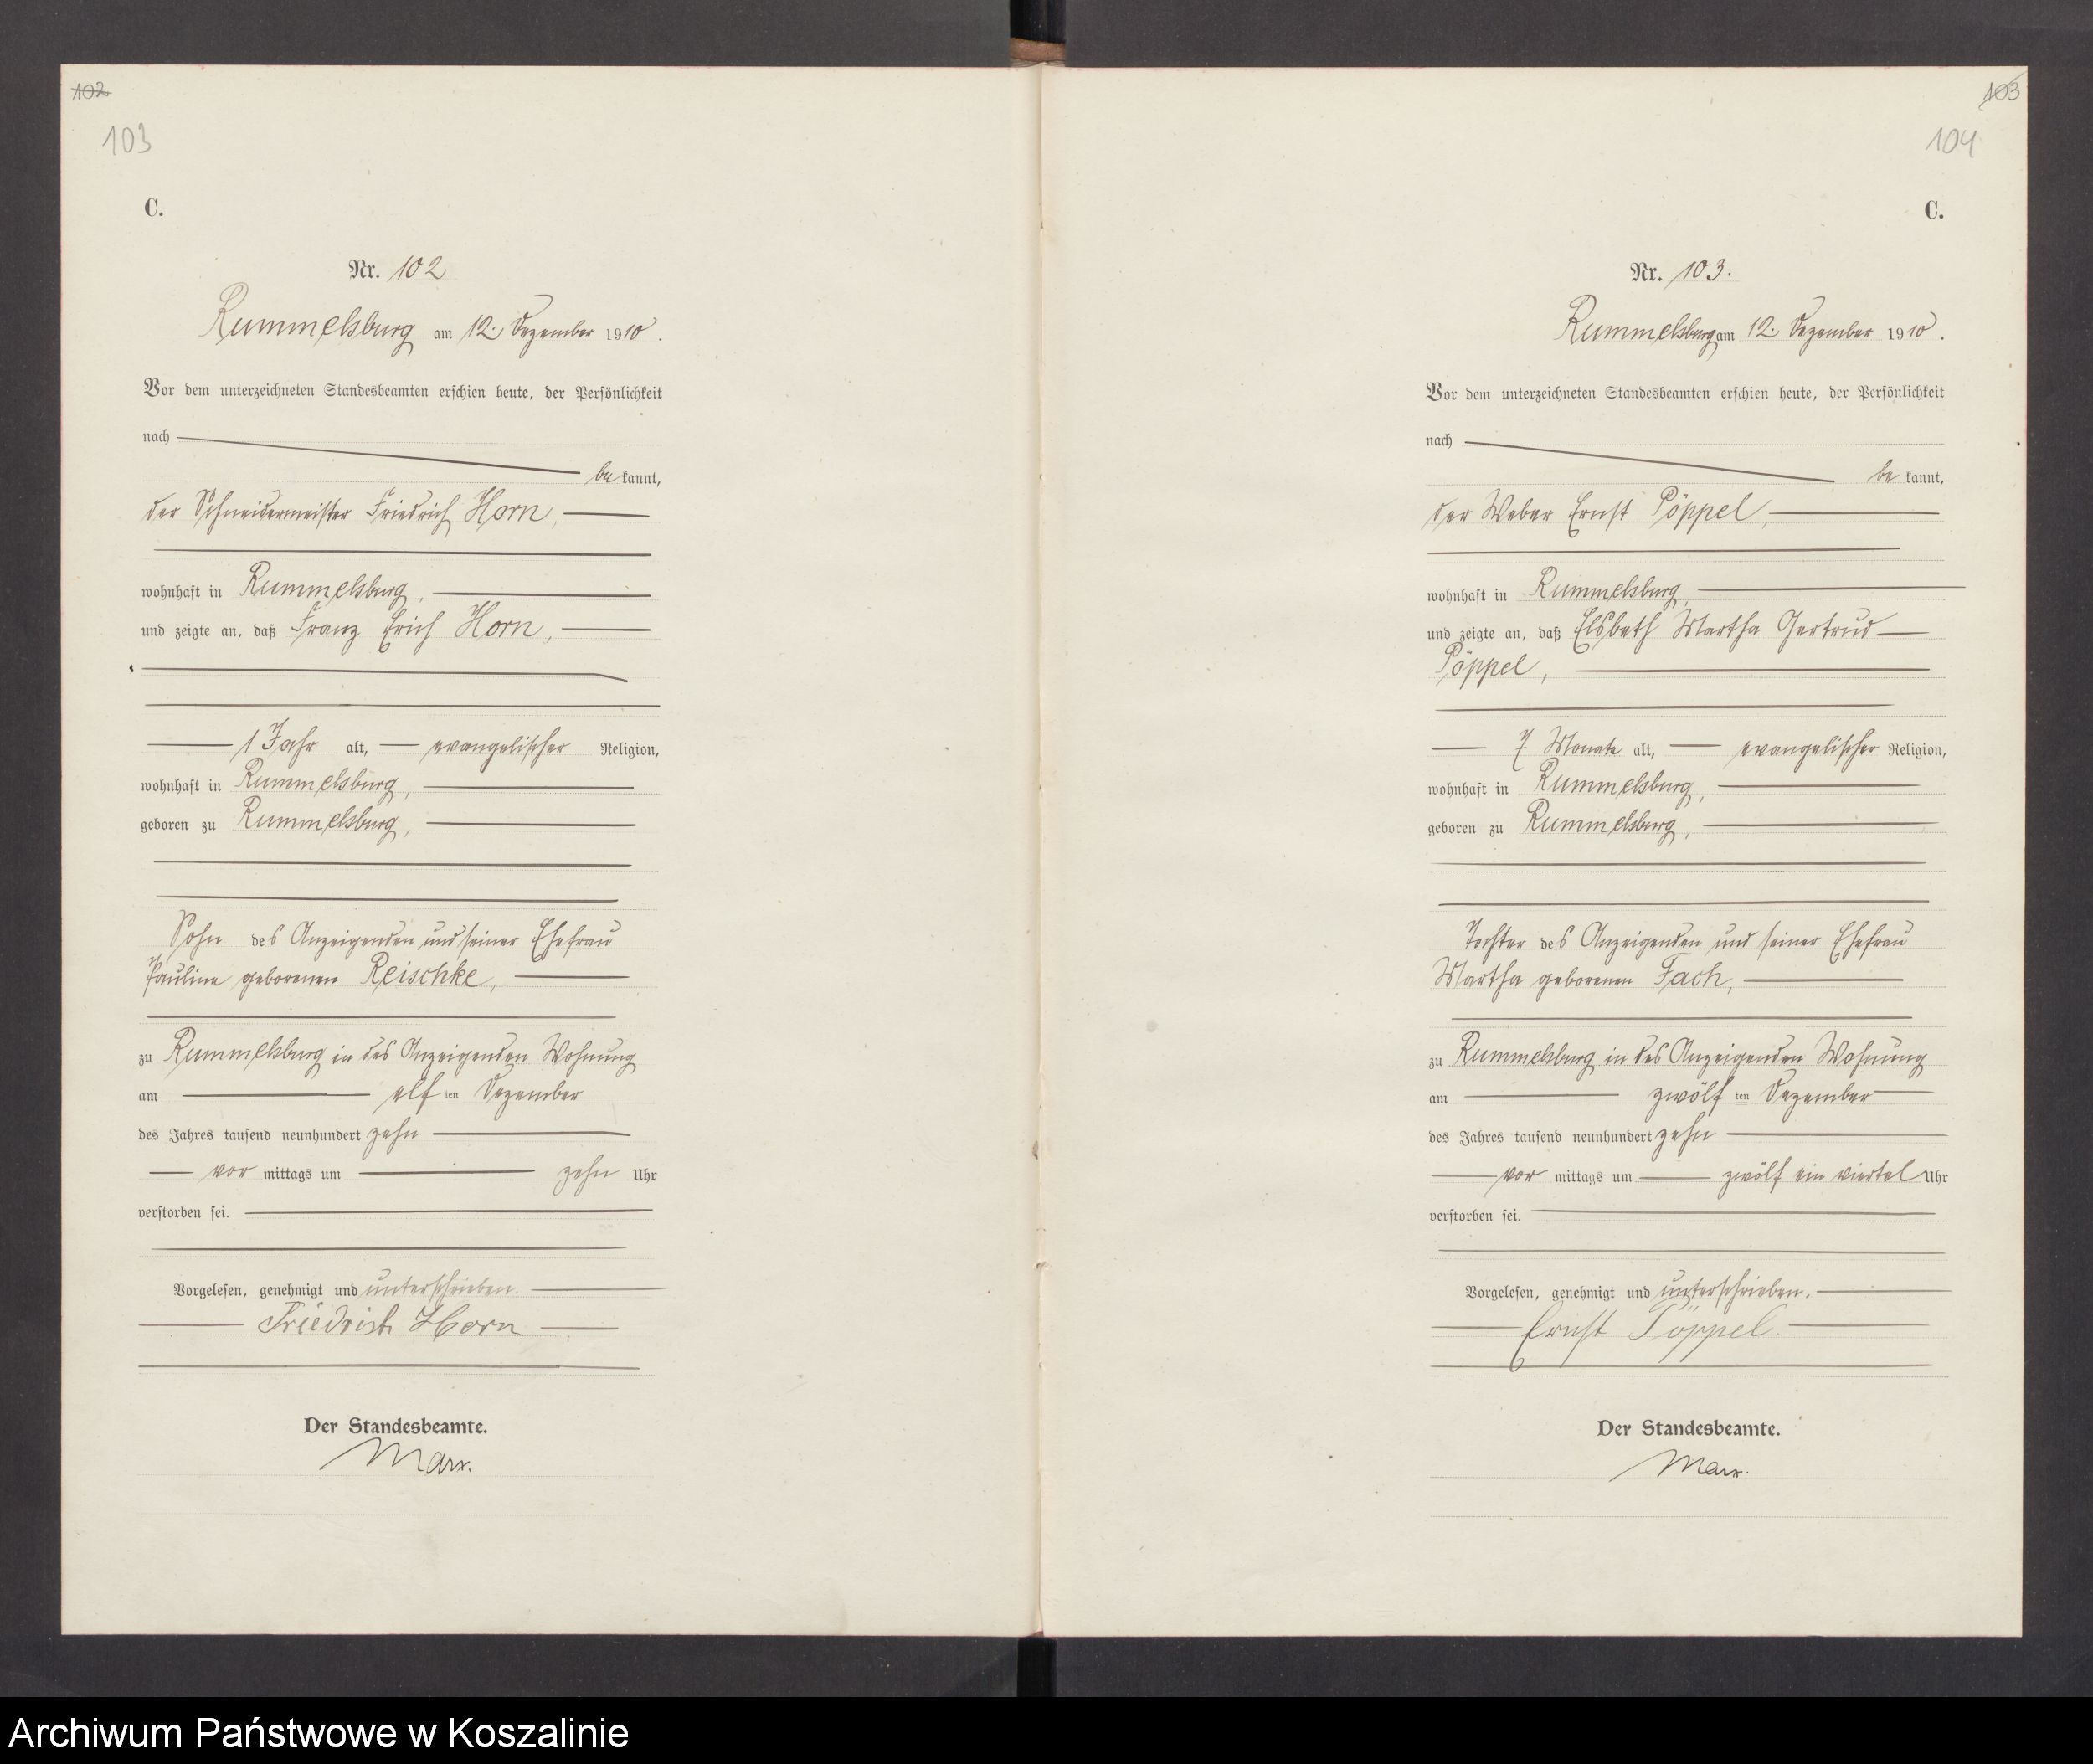 102
103
C.
Nr. 102
Rummelsburg am 12. Dezember 1910.
Vor dem unterzeichneten Standesbeamten erschien heute, der Persönlichkeit
nach
be kannt,
der Schneidermeister Friedrich Horn,
wohnhaft in Rummelsburg,
und zeigte an, daß Franz Erich Horn,
1 Jahr alt, evangelischer Religion,
wohnhaft in Rummelsburg,
geboren zu Rummelsburg,
Sohn des Anzeigenden und seiner Ehefrau
Pauline geborenen Reischke,
zu Rummelsburg in des Anzeigenden Wohnung
am elf ten Dezember
des Jahres tausend neunhundert zehn
vor mittags um zehn Uhr
verstorben sei.
Vorgelesen, genehmigt und unterschrieben.
Friedrich Horn
Der Standesbeamte.
Marx.
103
104
C.
Nr. 103.
Rummelsburg am 12. Dezember 1910.
Vor dem unterzeichneten Standesbeamten erschien heute, der Persönlichkeit
nach
be kannt,
der Weber Ernst Pöppel,
wohnhaft in Rummelsburg,
und zeigte an, daß Elsbeth Martha Gertrud
Pöppel,
7 Monate alt, evangelischer Religion,
wohnhaft in Rummelsburg,
geboren zu Rummelsburg,
Tochter des Anzeigenden und seiner Ehefrau
Martha geborenen Fach,
zu Rummelsburg in des Anzeigenden Wohnung
am zwölf ten Dezember
des Jahres tausend neunhundert zehn
vor mittags um zwölf ein viertel Uhr
verstorben sei.
Vorgelesen, genehmigt und unterschrieben.
Ernst Pöppel.
Der Standesbeamte.
Marx.
Archiwum Państwowe w Koszalinie